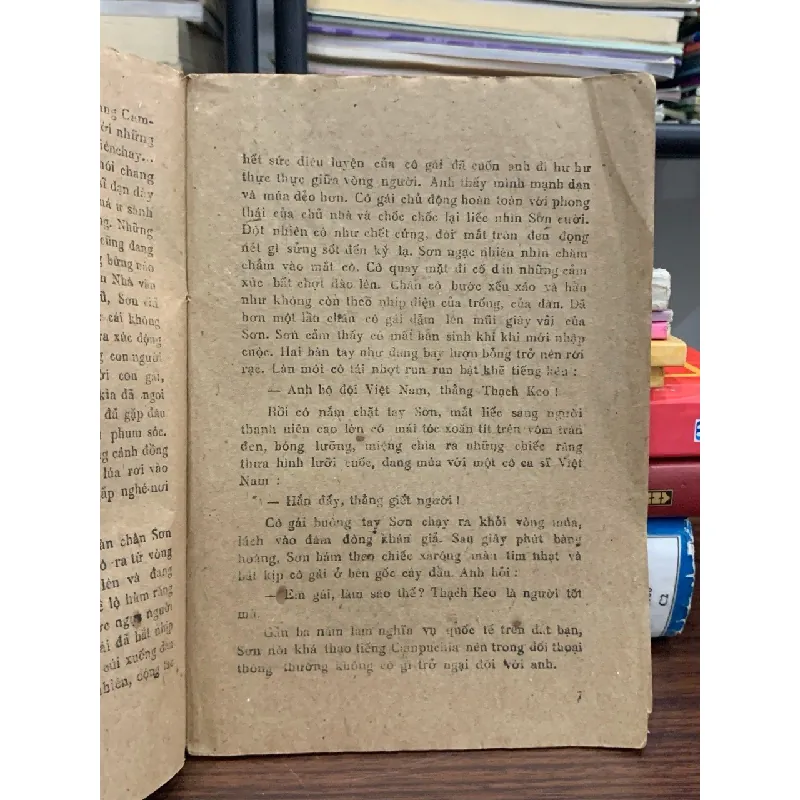 ang Cam-
ới những
iênchay...
nói chang
ì đạn dày
há ư sành
ng. Những
cũng đang
g bừng nào
n Nhà văn
ũ, Sơn vừa
c cái không
ra xúc động
g con người
ời con gái,
kia đã ngoi
đã gặp đâu
phum sóc.
g cánh đồng
lúa rơi vào
ấp nghé-nơi
àn chân Sơn
ó ra từ vòng
lên và đang
ẽ lộ hàm răng
ực người
ái đã bắt nhịp
cúi xuống đen
nhiên, động tác
hết sức điêu luyện của cô gái đã cuốn anh đi hư hư
thực thực giữa vòng người. Anh thấy mình mạnh dạn
và múa dẻo hơn. Cô gái chủ động hoàn toàn với phong
thái của chủ nhà và chốc chốc lại liếc nhìn Sơn cười.
Đột nhiên cô như chết cứng, đôi mắt tròn đen đọng
nét gì sửng sốt đến kỳ lạ. Sơn ngạc nhiên nhìn chăm
chăm vào mắt cô. Cô quay mặt đi cố dìu những cảm
xúc bất chợt dào lên. Chân cô bước xếu xáo và hần
như không còn theo nhịp điệu của trống, của đàn. Đã
hơn một lần chân cô gái dậm lên mũi giày vải của
Sơn. Sơn cảm thấy cô mất hẳn sinh khí khi mới nhập
cuộc. Hai bàn tay như đang bay lượn bỗng trở nên rời
rạc. Làn môi cô tái nhợt run run bật khẽ tiếng kêu :
— Anh bộ đội Việt Nam, thằng Thạch Keo !
Rồi cô nắm chặt tay Sơn, mắt liếc sang người
thanh niên cao lớn có mái tóc xoăn tít trên vòm trán
đen, bóng lưỡng, miệng chìa ra những chiếc răng
thưa hình lưỡi cuốc, đang múa với một cô ca sĩ Việt
Nam :
— Hắn đấy, thằng giết người !
Cô gái buông tay Sơn chạy ra khỏi vòng múa,
lách vào đám đông khán giả. Sau giây phút bàng
hoàng, Sơn bám theo chiếc xarông màu tím nhạt và
bắt kịp cô gái ở bên gốc cây dầu. Anh hỏi :
— Em gái, làm sao thế? Thạch Keo là người tốt
mà.
Gần ba năm làm nghĩa vụ quốc tế trên đất bạn,
Sơn nói khá thạo tiếng Campuchia nên trong đối thoại
thông thường không có gì trở ngại đối với anh.
7
C2